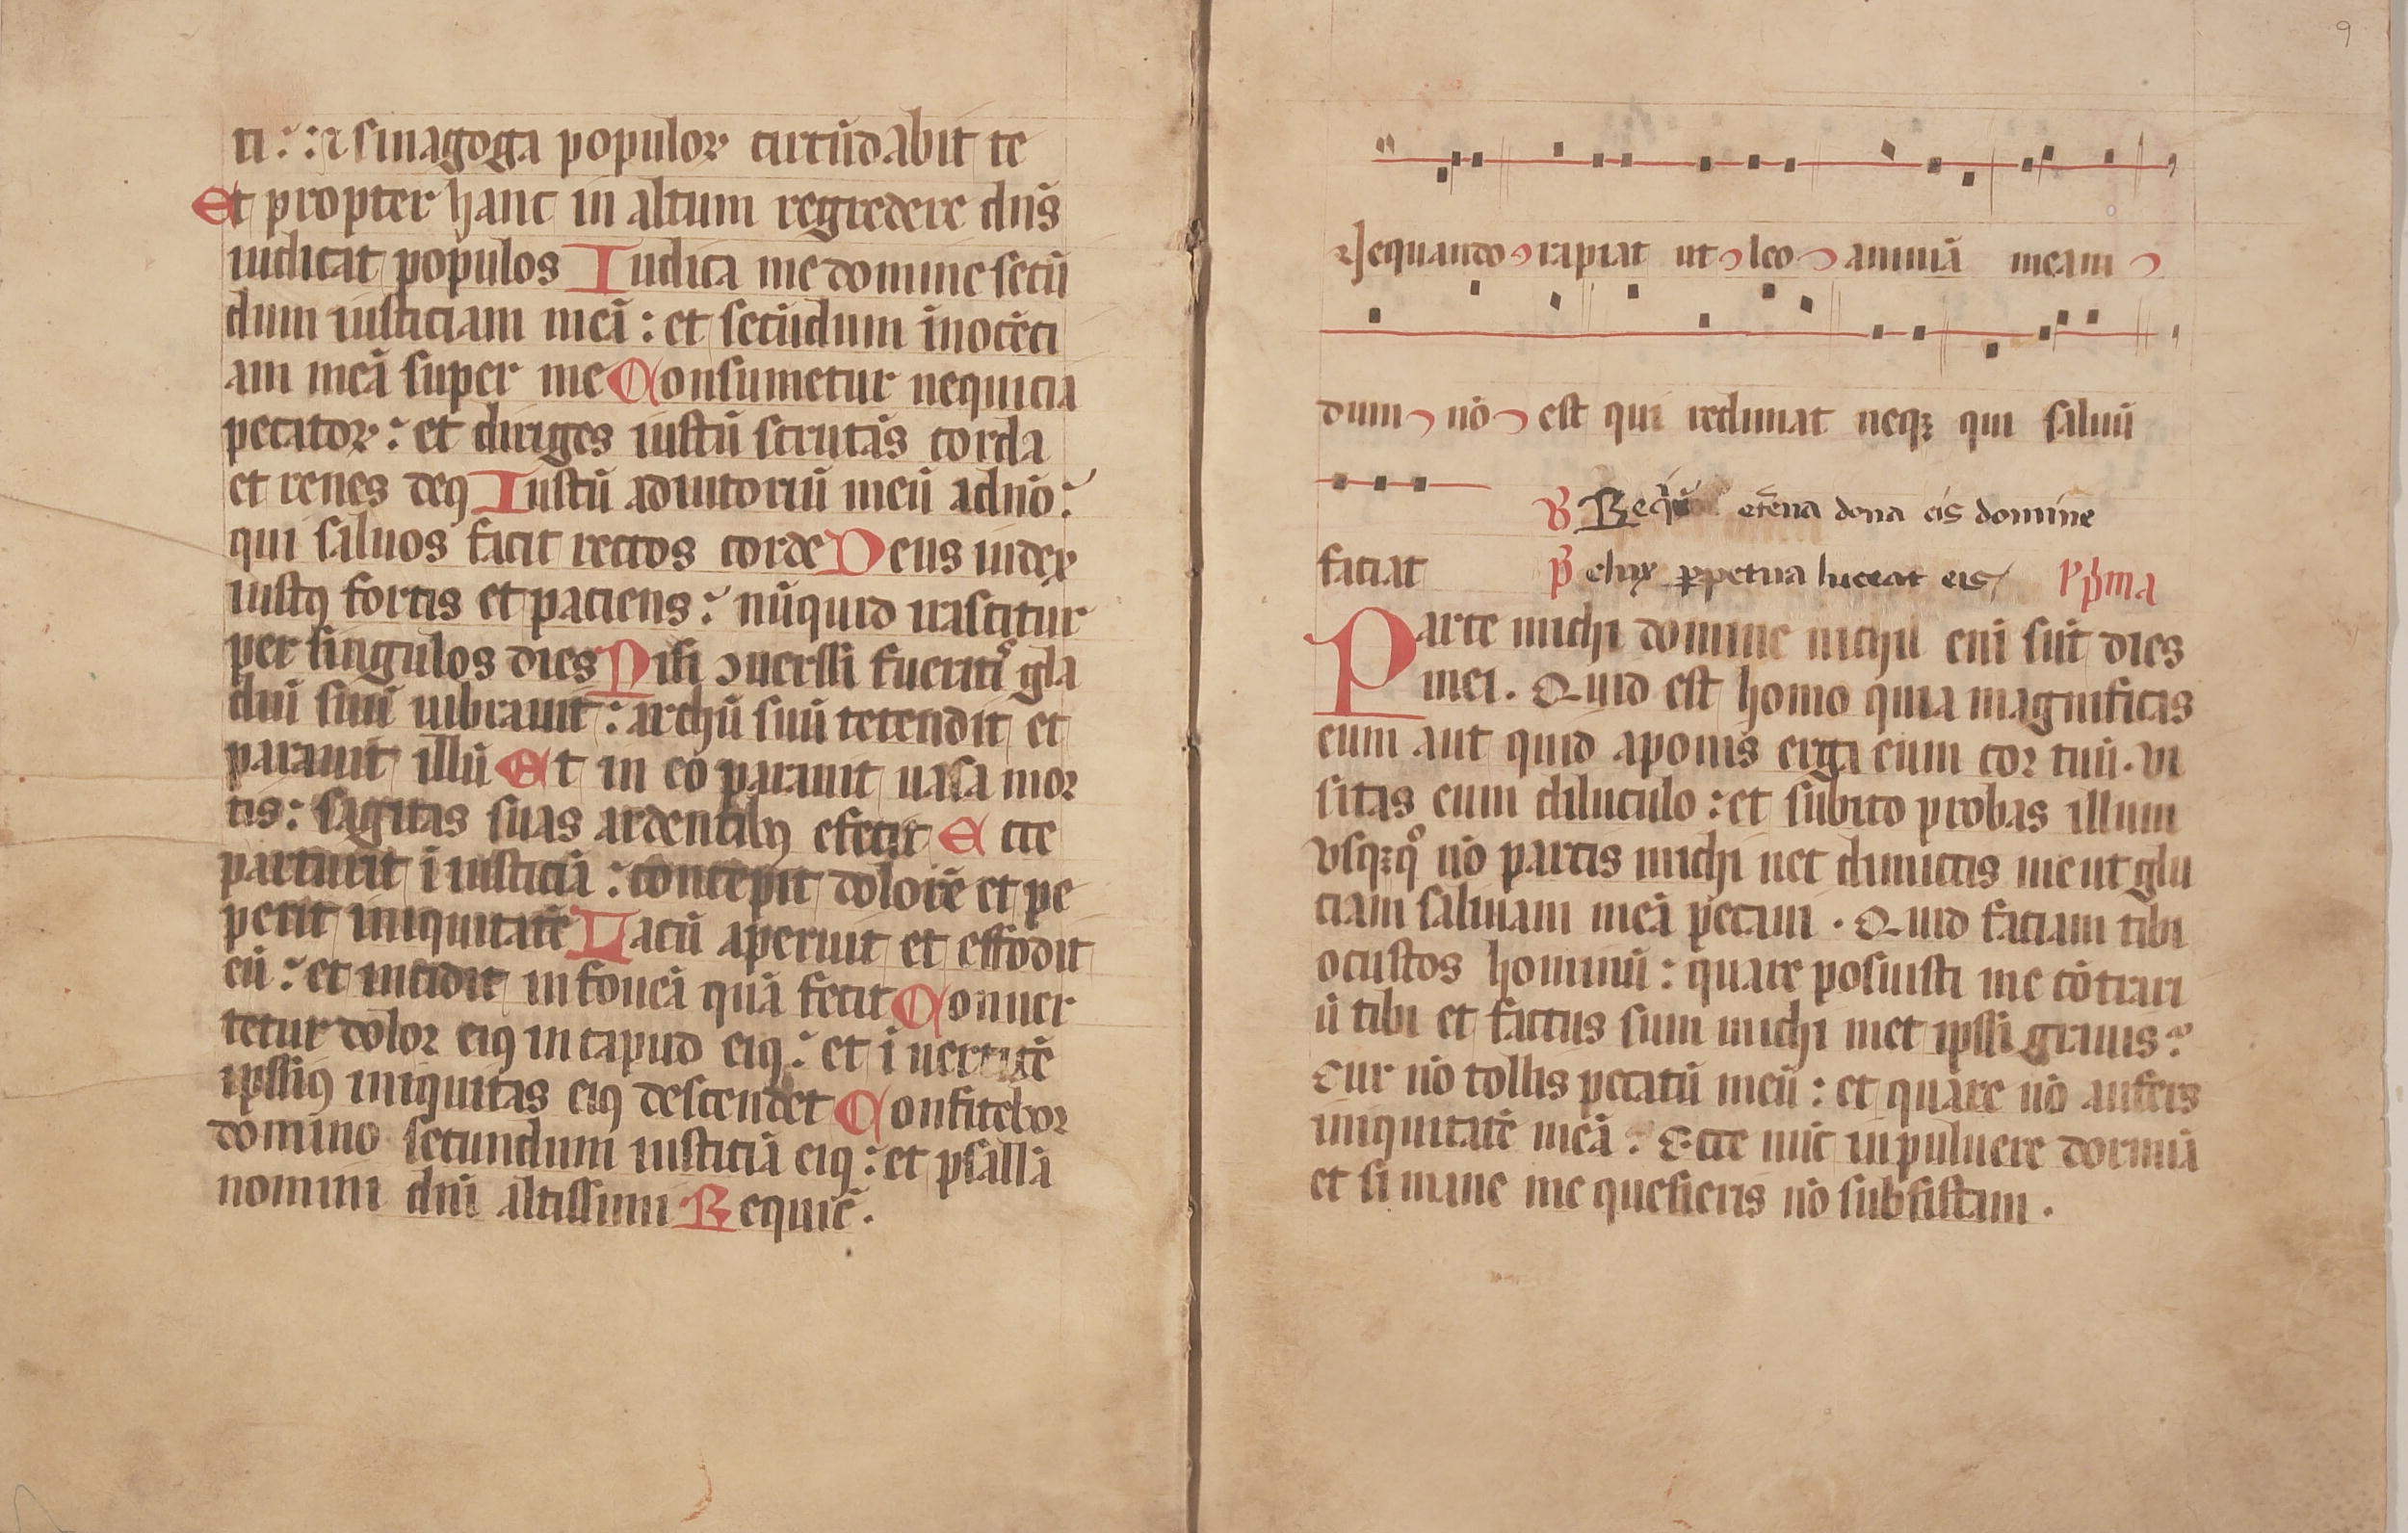 ti :̃ : ⁊ sinagoga populoꝝ circũdabit te
Et propter hanc in altum regredere dñs
iudicat populos Iudica me domine secũ
dum iusticiam meã : et secũdum ĩnocẽci
am meã super me Consumetur nequicia
pecatoꝝ :̃ et diriges iustũ scrutãs corda
et renes deꝰ Iustũ adiutoriũ meũ adn̄o :̃
qui saluos facit rectos corde Deus iudex
iustꝰ fortis et paciens :̃ nũquid irascitur
per singulos dies Nisi ↄuerssi fueritĩ gla
diũ suũ uibrauit : archũ suũ tetendit et
parauit illũ Et in eo parauit uasa mor
tis : sagitas suas ardentibꝰ efecit Ecce
parturit ĩiusticiã : concepit dolorẽ et pe
perit iniquitatẽ Lacũ aperuit et effodit
eũ :̃ et incidit in foueã quã fecit Conuer
tetur dolor eiꝰ in capud eiꝰ :̃ et ĩ uerticẽ
ipssiꝰ iniquitas eiꝰ descendet Confitebor
domino secundum iusticiã eiꝰ : et psallã
nomini dñi altissimi Requiẽ .
9
Nequando rapiat ut leo animã meam
dum nõ est qui redimat neqꝫ qui saluũ
℟ Requiẽ etẽna dona eis domine
faciat ℟ elux ꝑpetua luceat eis / pp̃ma
Parce michi domine nichil enĩ sũt dies
mei . Quid est homo quia magnificas
eum aut quid aponis erga eum cor tuũ . vi
sitas eum diluculo : et subito probas illum
vsqꝫqͦ nõ parcis michi nec dimictis me ut glu
ciam saliuam meã pecaui . Quid faciam tibi
ocustos hominũ : quare posuisti me cõtrari
ũ tibi et factus sum michi met ipssi grauis :̃
Cur nõ tollis pecatũ meũ : et quare nõ aufers
iniquitatẽ meã :̃ Ecce nũc in puluere dormiã
et si mane me quesieris nõ subsistam .